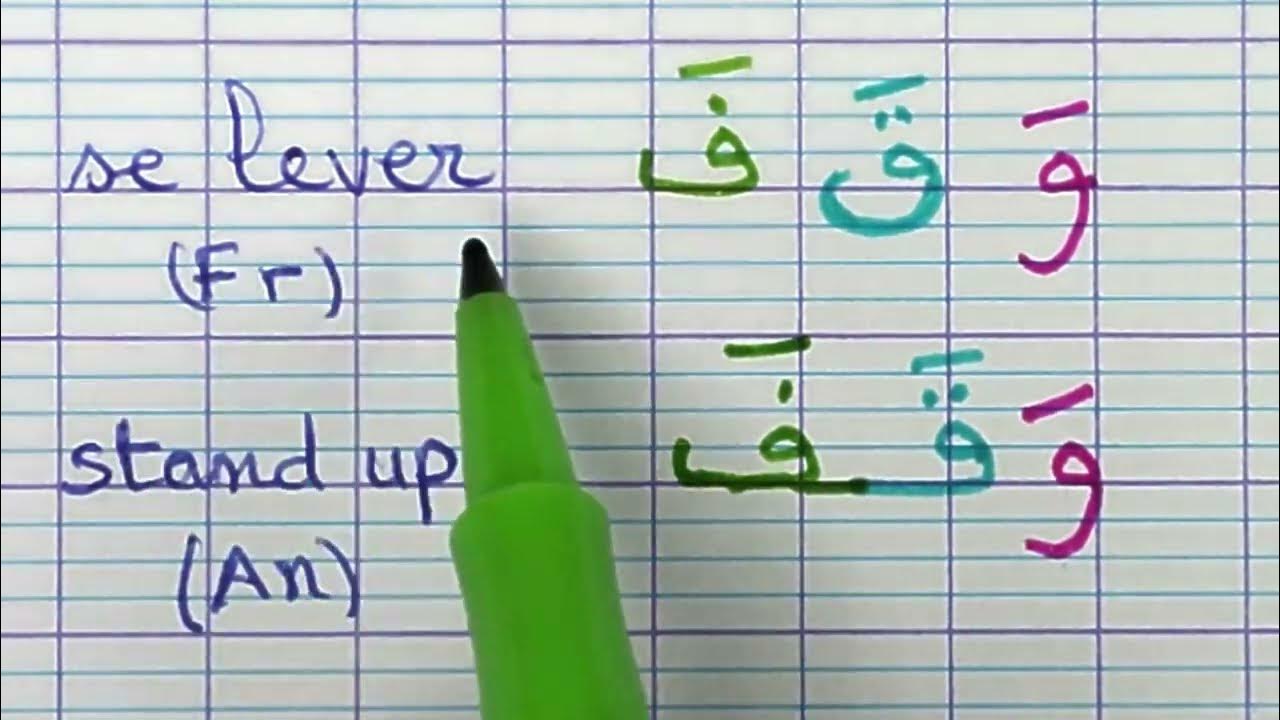 se lever وَ قَ فَ
(Fr)
stand up وَقَفَ
(An)